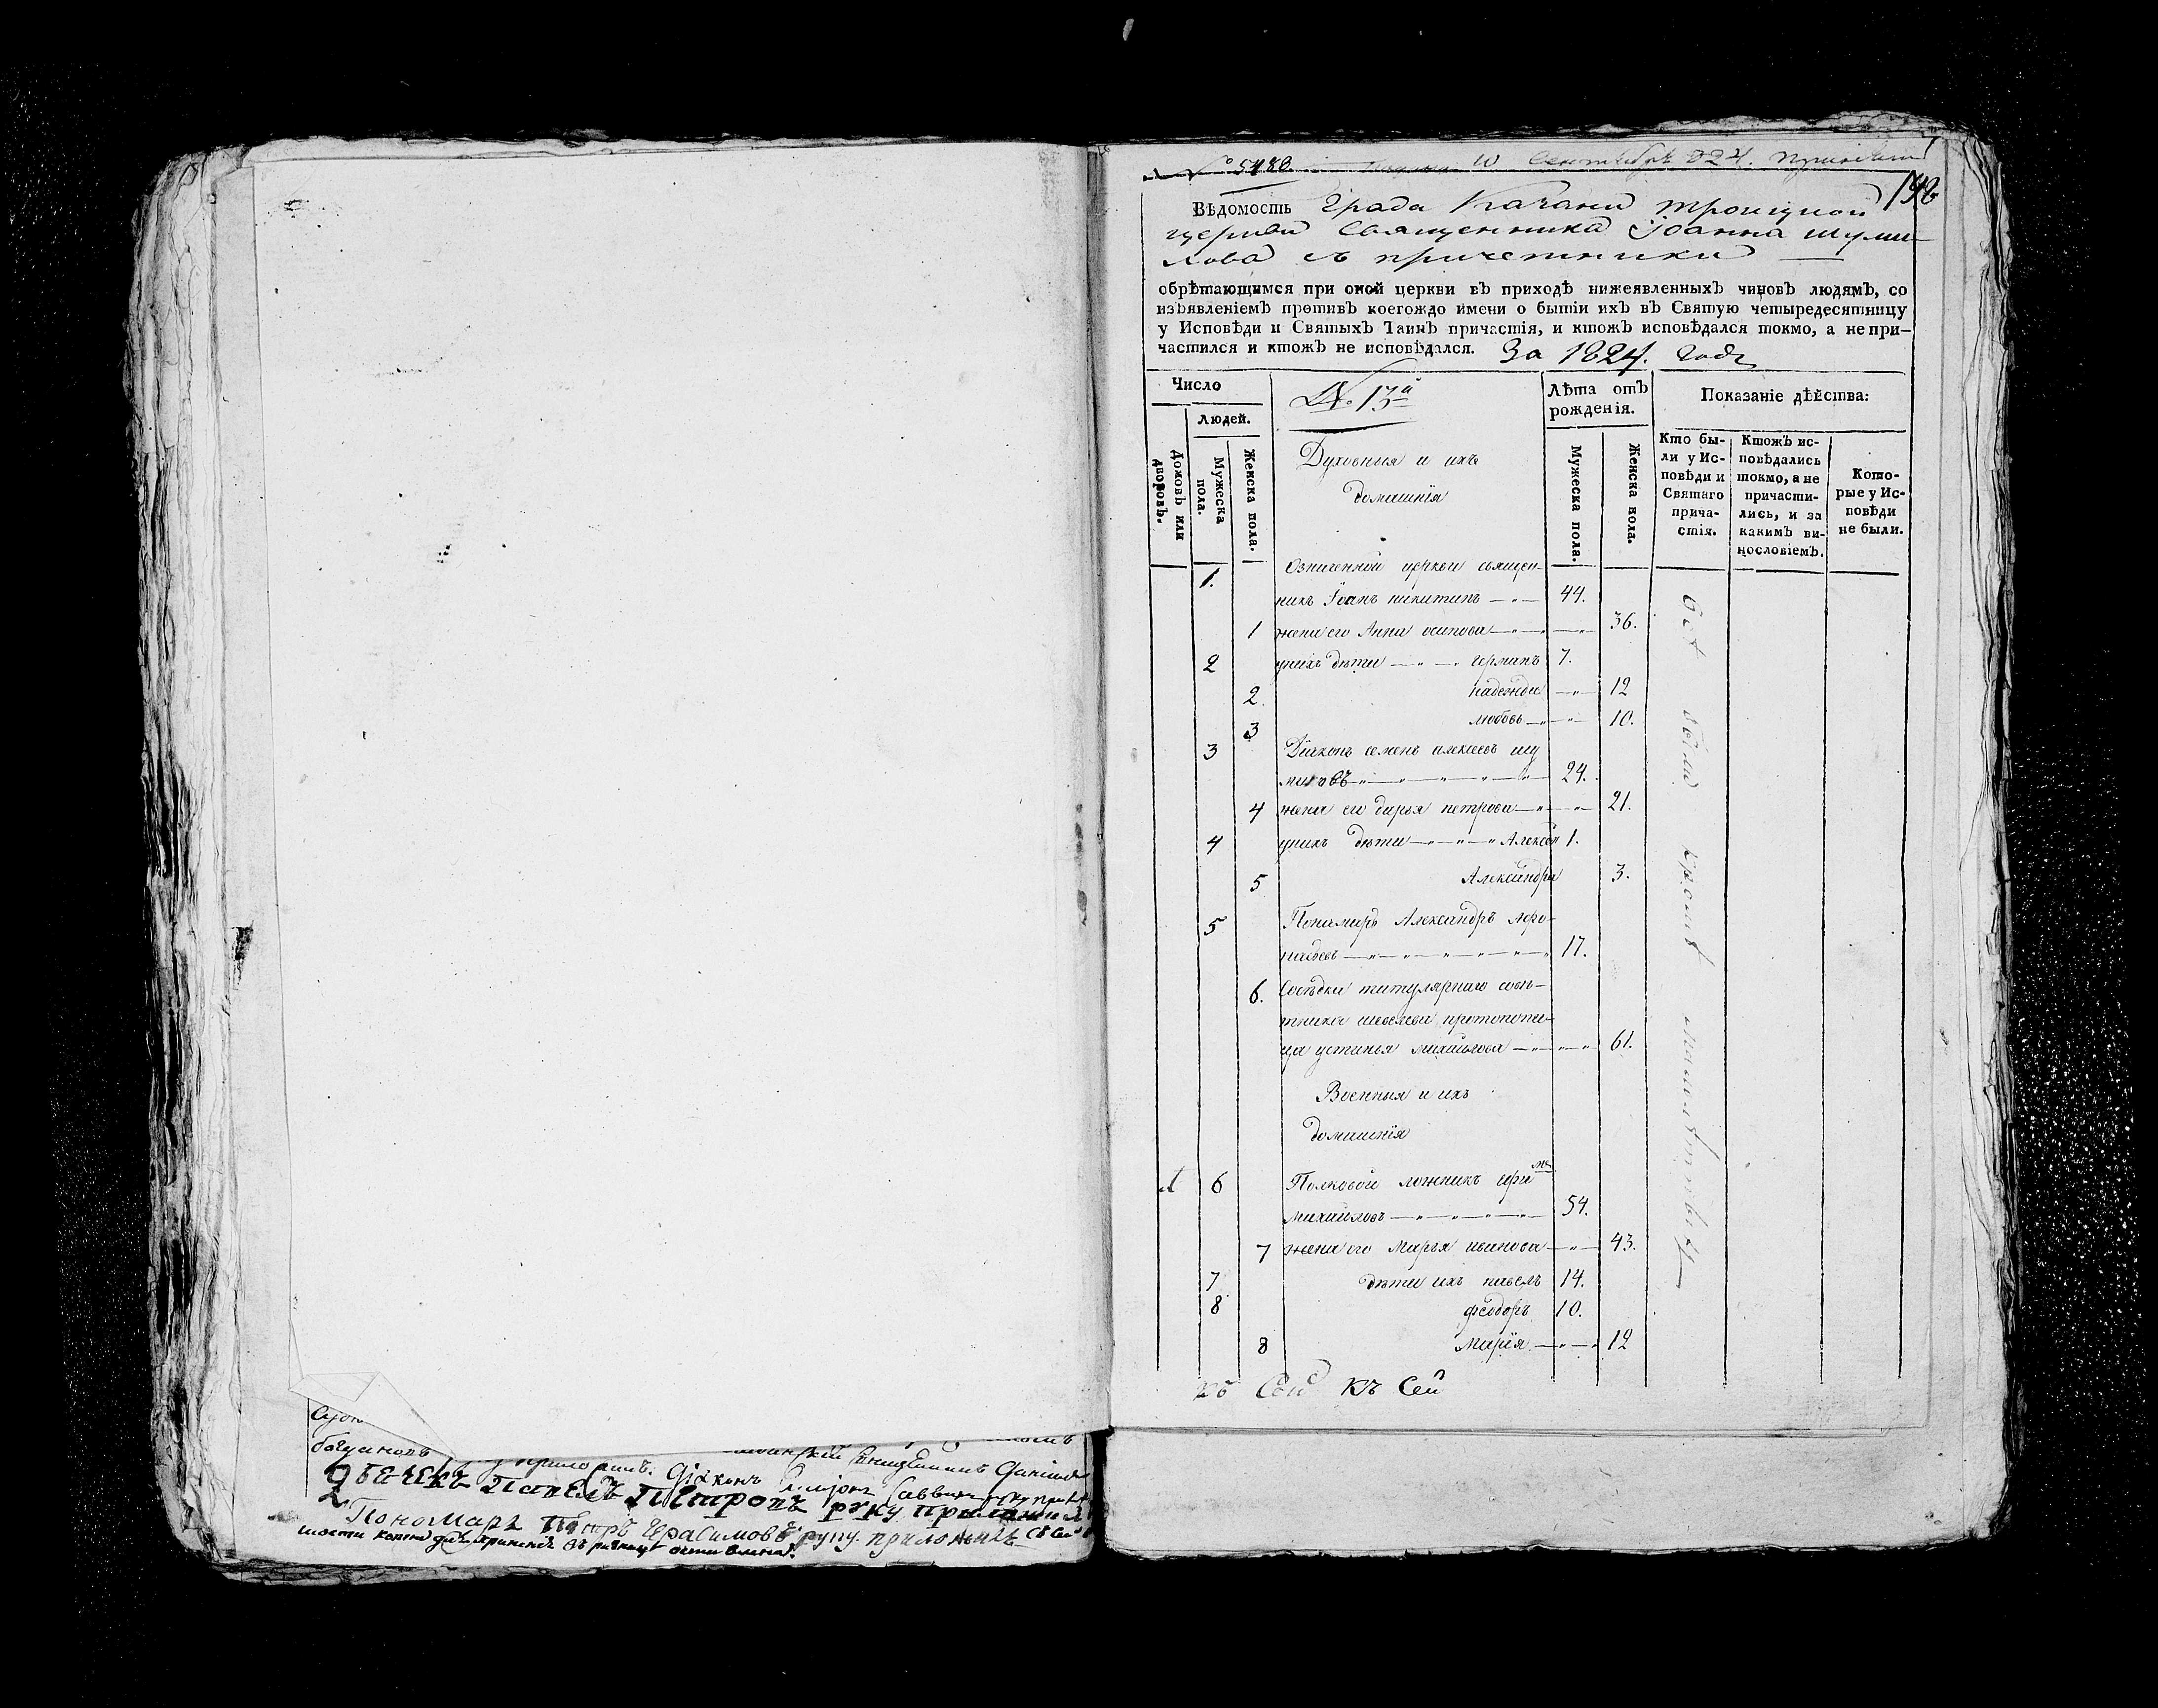 № 5480. 10 Сентября 824.
148
Вѣдомость Града Казани троицкой
церкви Священника Іоанна шуми-
лова съ причетники
обрѣтающимся при оной церкви въ приходѣ нижеявленныхъ чиновъ людямъ, со
изъявленіемъ противъ коегождо имени о бытіи ихъ въ Святую четыредесятницу
у Исповѣди и Святыхъ Таинъ причастія, и ктожъ исповѣдался токмо, а не при-
частился и ктожъ не исповѣдался. За 1824. годъ
Число
Людей.
Домовъ или дворовъ.
Мужеска пола.
Женска пола.
№ 13й
Лѣта отъ рожденія.
Мужеска пола.
Женска пола.
Показаніе дѣйства:
Кто бы-
ли у Ис-
повѣди и
Святаго
прича-
стія.
Ктожъ ис-
повѣдались
токмо, а не
причасти-
лись, и за
какимъ ви-
нословіемъ.
Кото-
рые у Ис-
повѣди
не были.
Духовныя и ихъ
домашнія
1. Означенной церкви священ-
никъ Іоанъ никитинъ 44.
1 жена его Анна осипова 36.
2 уихъ дѣти германъ 7.
2. надежда 12
3 любовь 10.
3 Діаконъ семенъ алексеевъ шу
миловъ 24.
4 жена его дарья петрова 21.
4 унихъ дѣти Алексѣй 1.
5 Александра 3.
5 Пономарь Александръ
17.
6. титулярнаго совѣ-
тника протопопи-
ца устинья михайлова 61.
Военныя и ихъ
домашнія
1 6 Полковой
михайловъ 54.
7 жена его Марья иванова 43.
7 дѣти ихъ павелъ 14.
8 феодоръ 10.
8 Марія 12
Къ Сей Къ Сей
Діаконъ
Петровъ руку приложилъ
Пономарь Петръ Герасимовъ руку приложилъ